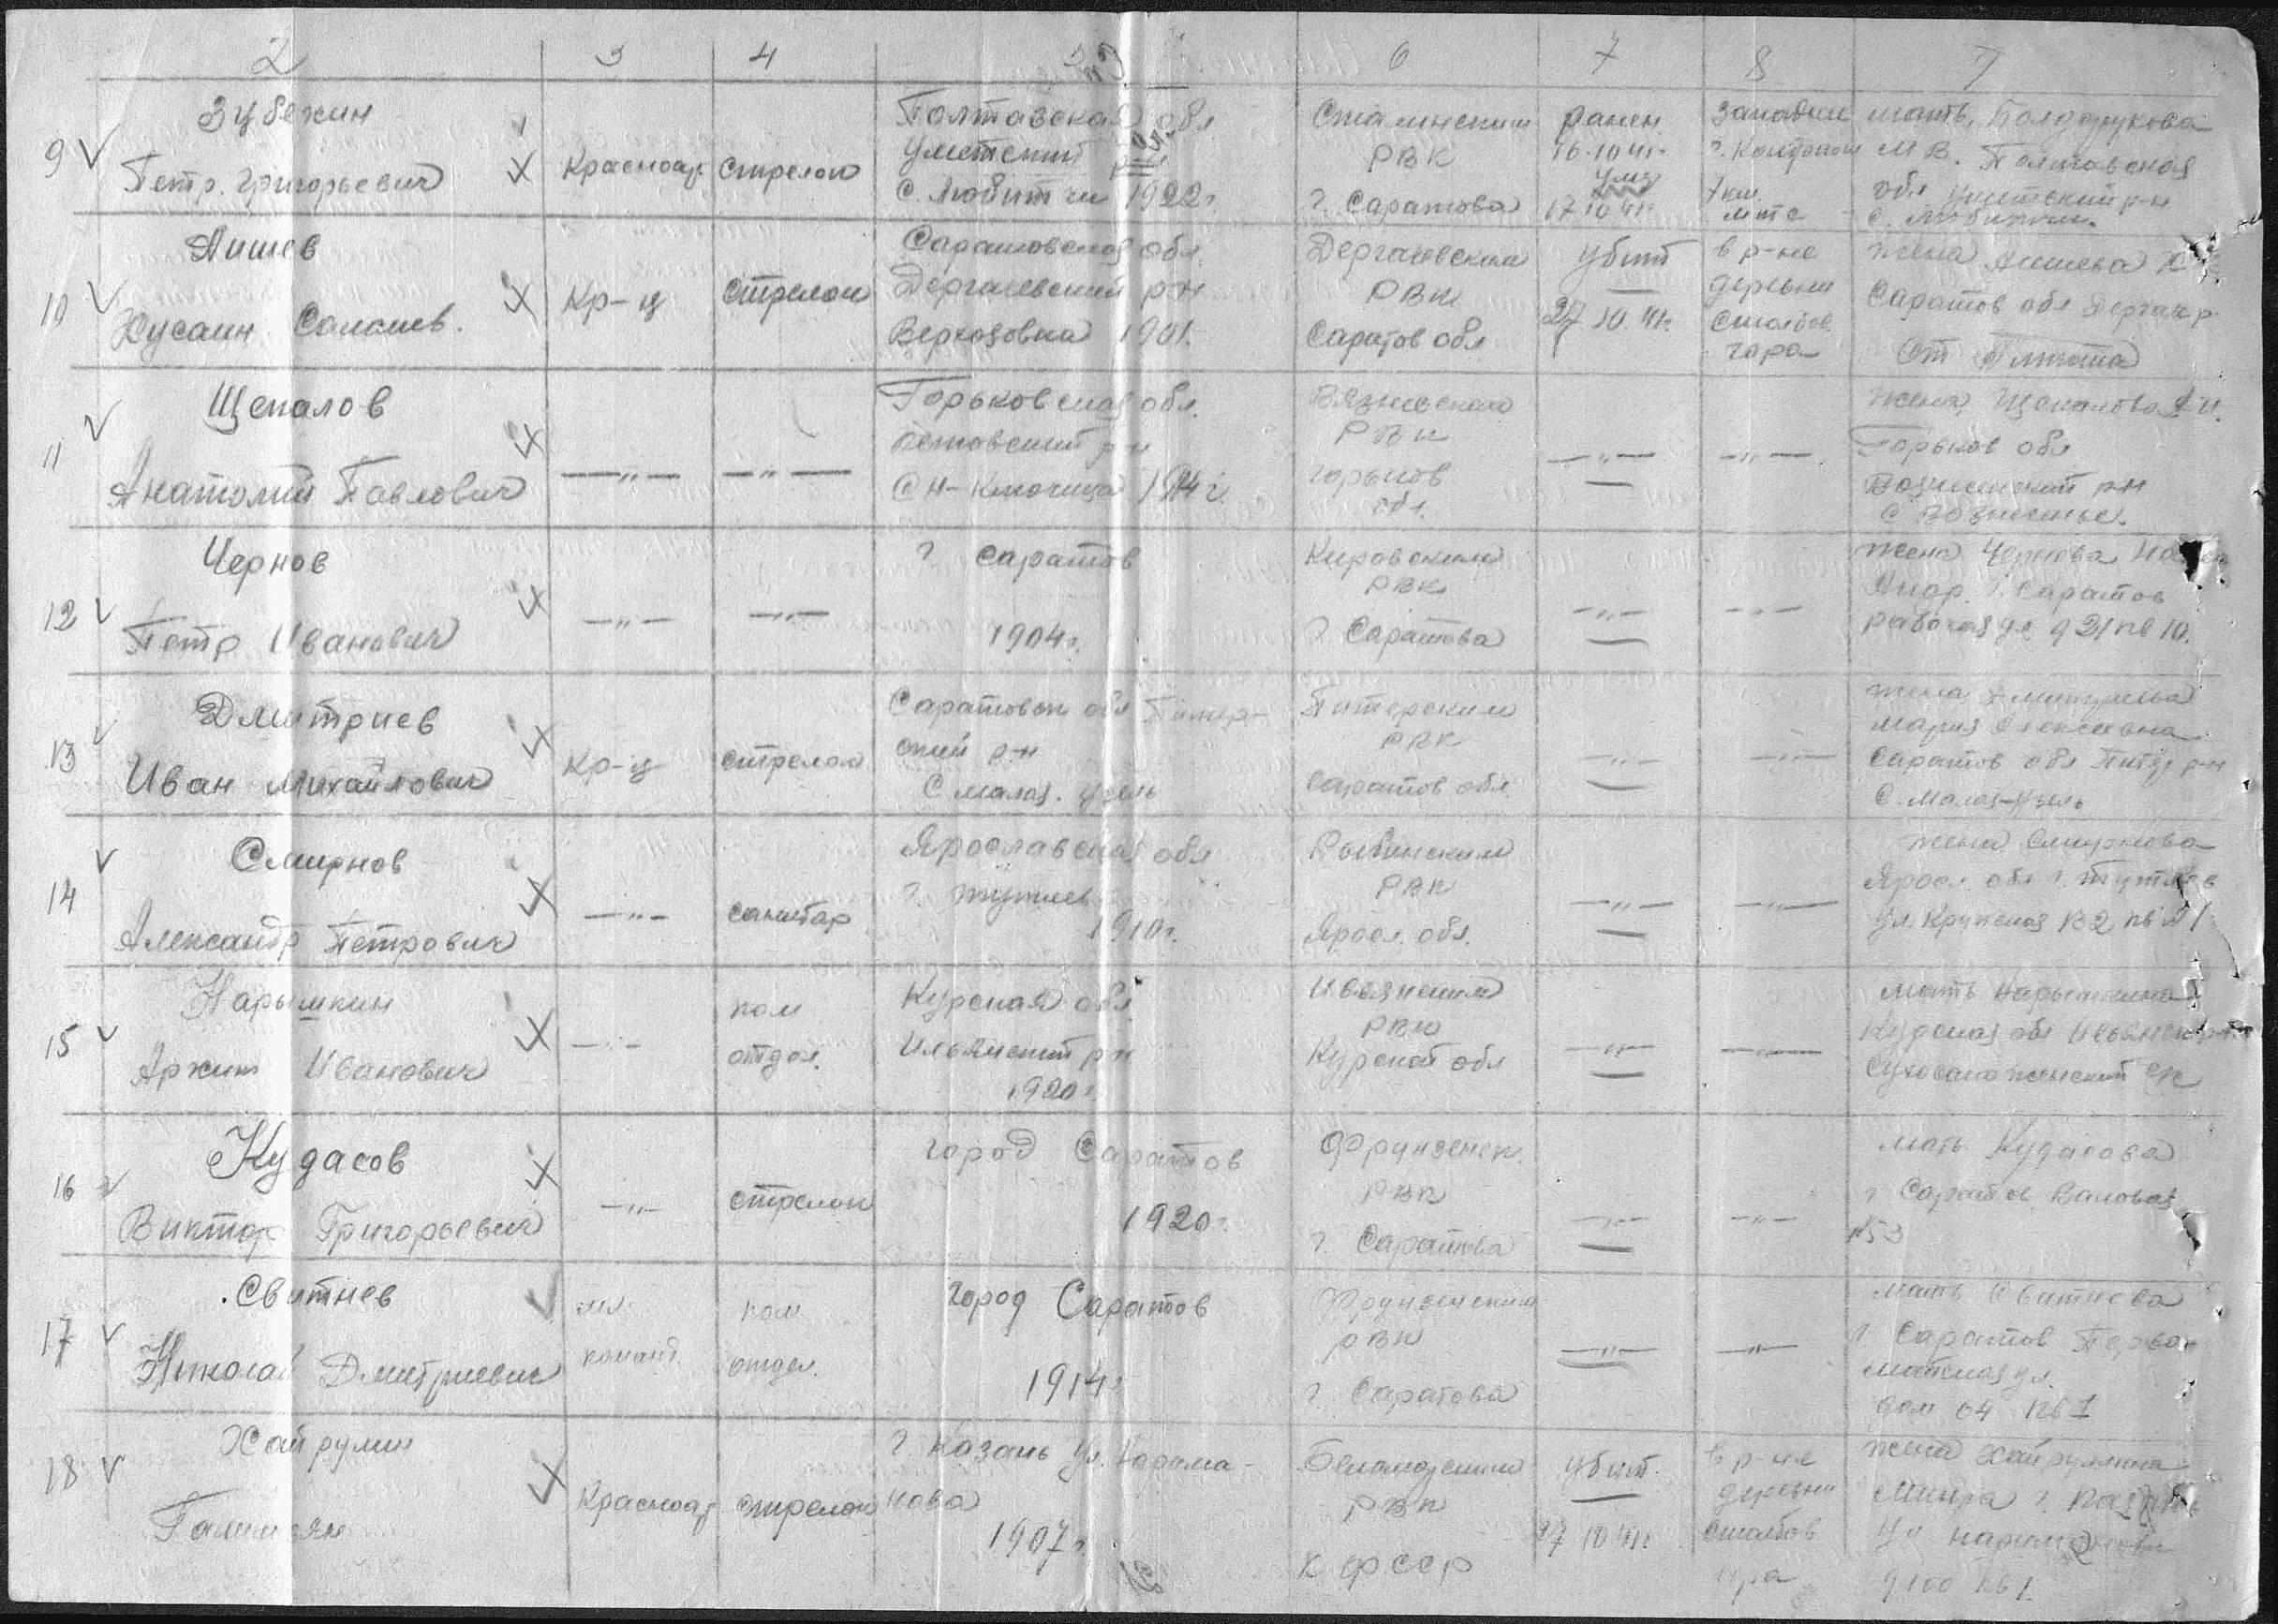 2 3 4 5 6 7 8 9
9 Зубехин
Петр. Григорьевич
Красноар. стрелок
Полтавская обл
Уметский р-н
с. Любитчи 1922 г.
Сталинским
РВК
г. Саратова
ранен
16.10.41г.
умер
17.10.41г.
западнее
7 км.
мать,
М В. Полтавская
обл Уметский р-н
10 Аишев
Хусаин
Кр-ц стрелок
Саратовская обл.
Дергачевский р-н
Верхазовка 1901.
Дергачевским
РВК
Саратов обл
убит
27.10.41г.
в р-не
деревни
Столбов.
гора
жена Аишева
Саратов обл Дергач р.
ст Алтата
11 Щепалов
Анатолий Павлович
—„— —„—
Горьковская обл.
р-н
1914 г.
РВК
Горьков
обл.
—„— —„—
жена,
Горьков обл
Вознесенский р-н
с Вознесенье.
12 Чернов
Петр Иванович
—„— —„—
г Саратов
1904г.
Кировским
РВК
г Саратова
—„— —„—
жена Чернова
г. Саратов
рабочая ул. д 21 кв 10.
13 Дмитриев
Иван Михайлович
Кр-ц стрелок
Саратовск обл Питер-
ский р-н
С малая. узень
Питерским
РВК
Саратов обл
—„— —„—
жена Дмитриева
Мария Алексеевна
Саратов обл Питер р-н
с. Малая-узень
14 Смирнов
Александр Петрович
—„— санитар
Ярославская обл
г. Тутаев
1910г.
Рыбинским
РВК
Яросл. обл.
—„— —„—
жена Смирнова
Яросл. обл г. Тутаев
15 Нарышкин
Иванович
—„— пом
отдел.
Курская обл.
р-н
1920г
РВК
Курской обл
—„— —„—
мать Нарышкина
Курская обл
16 Кудасов
Виктор Григорьевич
—„— стрелок
город Саратов
1920г.
Фрунзенск.
РВК
г. Саратова
—„— —„—
мать Кудасова
г Саратов Валовая
№53
17 Свитнев
Николай Дмитриевич
мл.
команд.
пом
отдел.
город Саратов
1914г
Фрунзенским
РВК
г. Саратова
—„— —„—
мать Свитнева
г. Саратов Перво-
майская ул.
дом 64 кв 1
18 Хайрулин
Галимзян
Красноар стрелок
г. Казань ул. Нарима-
нова
1907г.
РВК
убит.
27.10.41г
в р-не
деревни
Столбов
гора
жена Хайрулина
г. Казань
ул нариманова
д 100 кв 1.